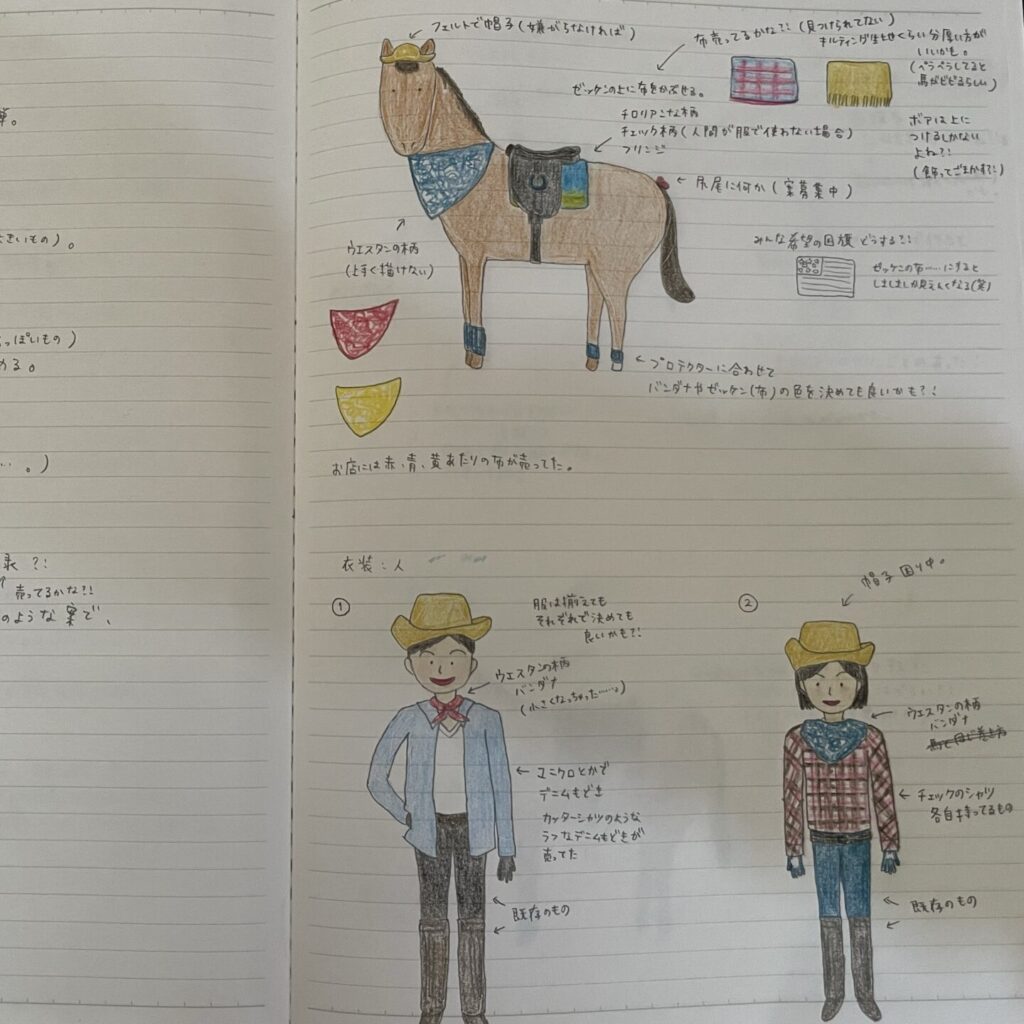 弾。
きいもの)。
っぽいもの)
める。
…。)
?!
売ってるかな?!
のような案で、
フェルトで帽子(嫌がらなければ)
布売ってるかな?!(見つけられてない)
キルティング生地くらい分厚い方が
いいかも。
(ペラペラしてると
馬がビビるらしい)
ゼッケンの上に布をかぶせる。
チロリアンな柄
チェック柄(人間が服で使わない場合)
フリンジ
ボアは上に
つけるしかない
よね?!
(飾ってごまかす?!)
尻尾に何か(案募集中)
ウエスタンの柄
(上手く描けない)
みんな希望の国旗どうする?!
ゼッケンの布……にすると
しましましか見えんくなる(笑)
プロテクターに合わせて
バンダナやゼッケン(布)の色を決めても良いかも?!
お店には赤、青、黄あたりの布が売ってた。
衣装:人
①
服は揃えても
それぞれで決めても
良いかも?!
ウエスタンの柄
バンダナ
(小さくなっちゃった……。)
ユニクロとかで
デニムもどき
カッターシャツのような
ラフなデニムもどきが
売ってた
既存のもの
②
帽子困り中。
ウエスタンの柄
バンダナ
馬と同じ巻き方
チェックのシャツ
各自持ってるもの
既存のもの